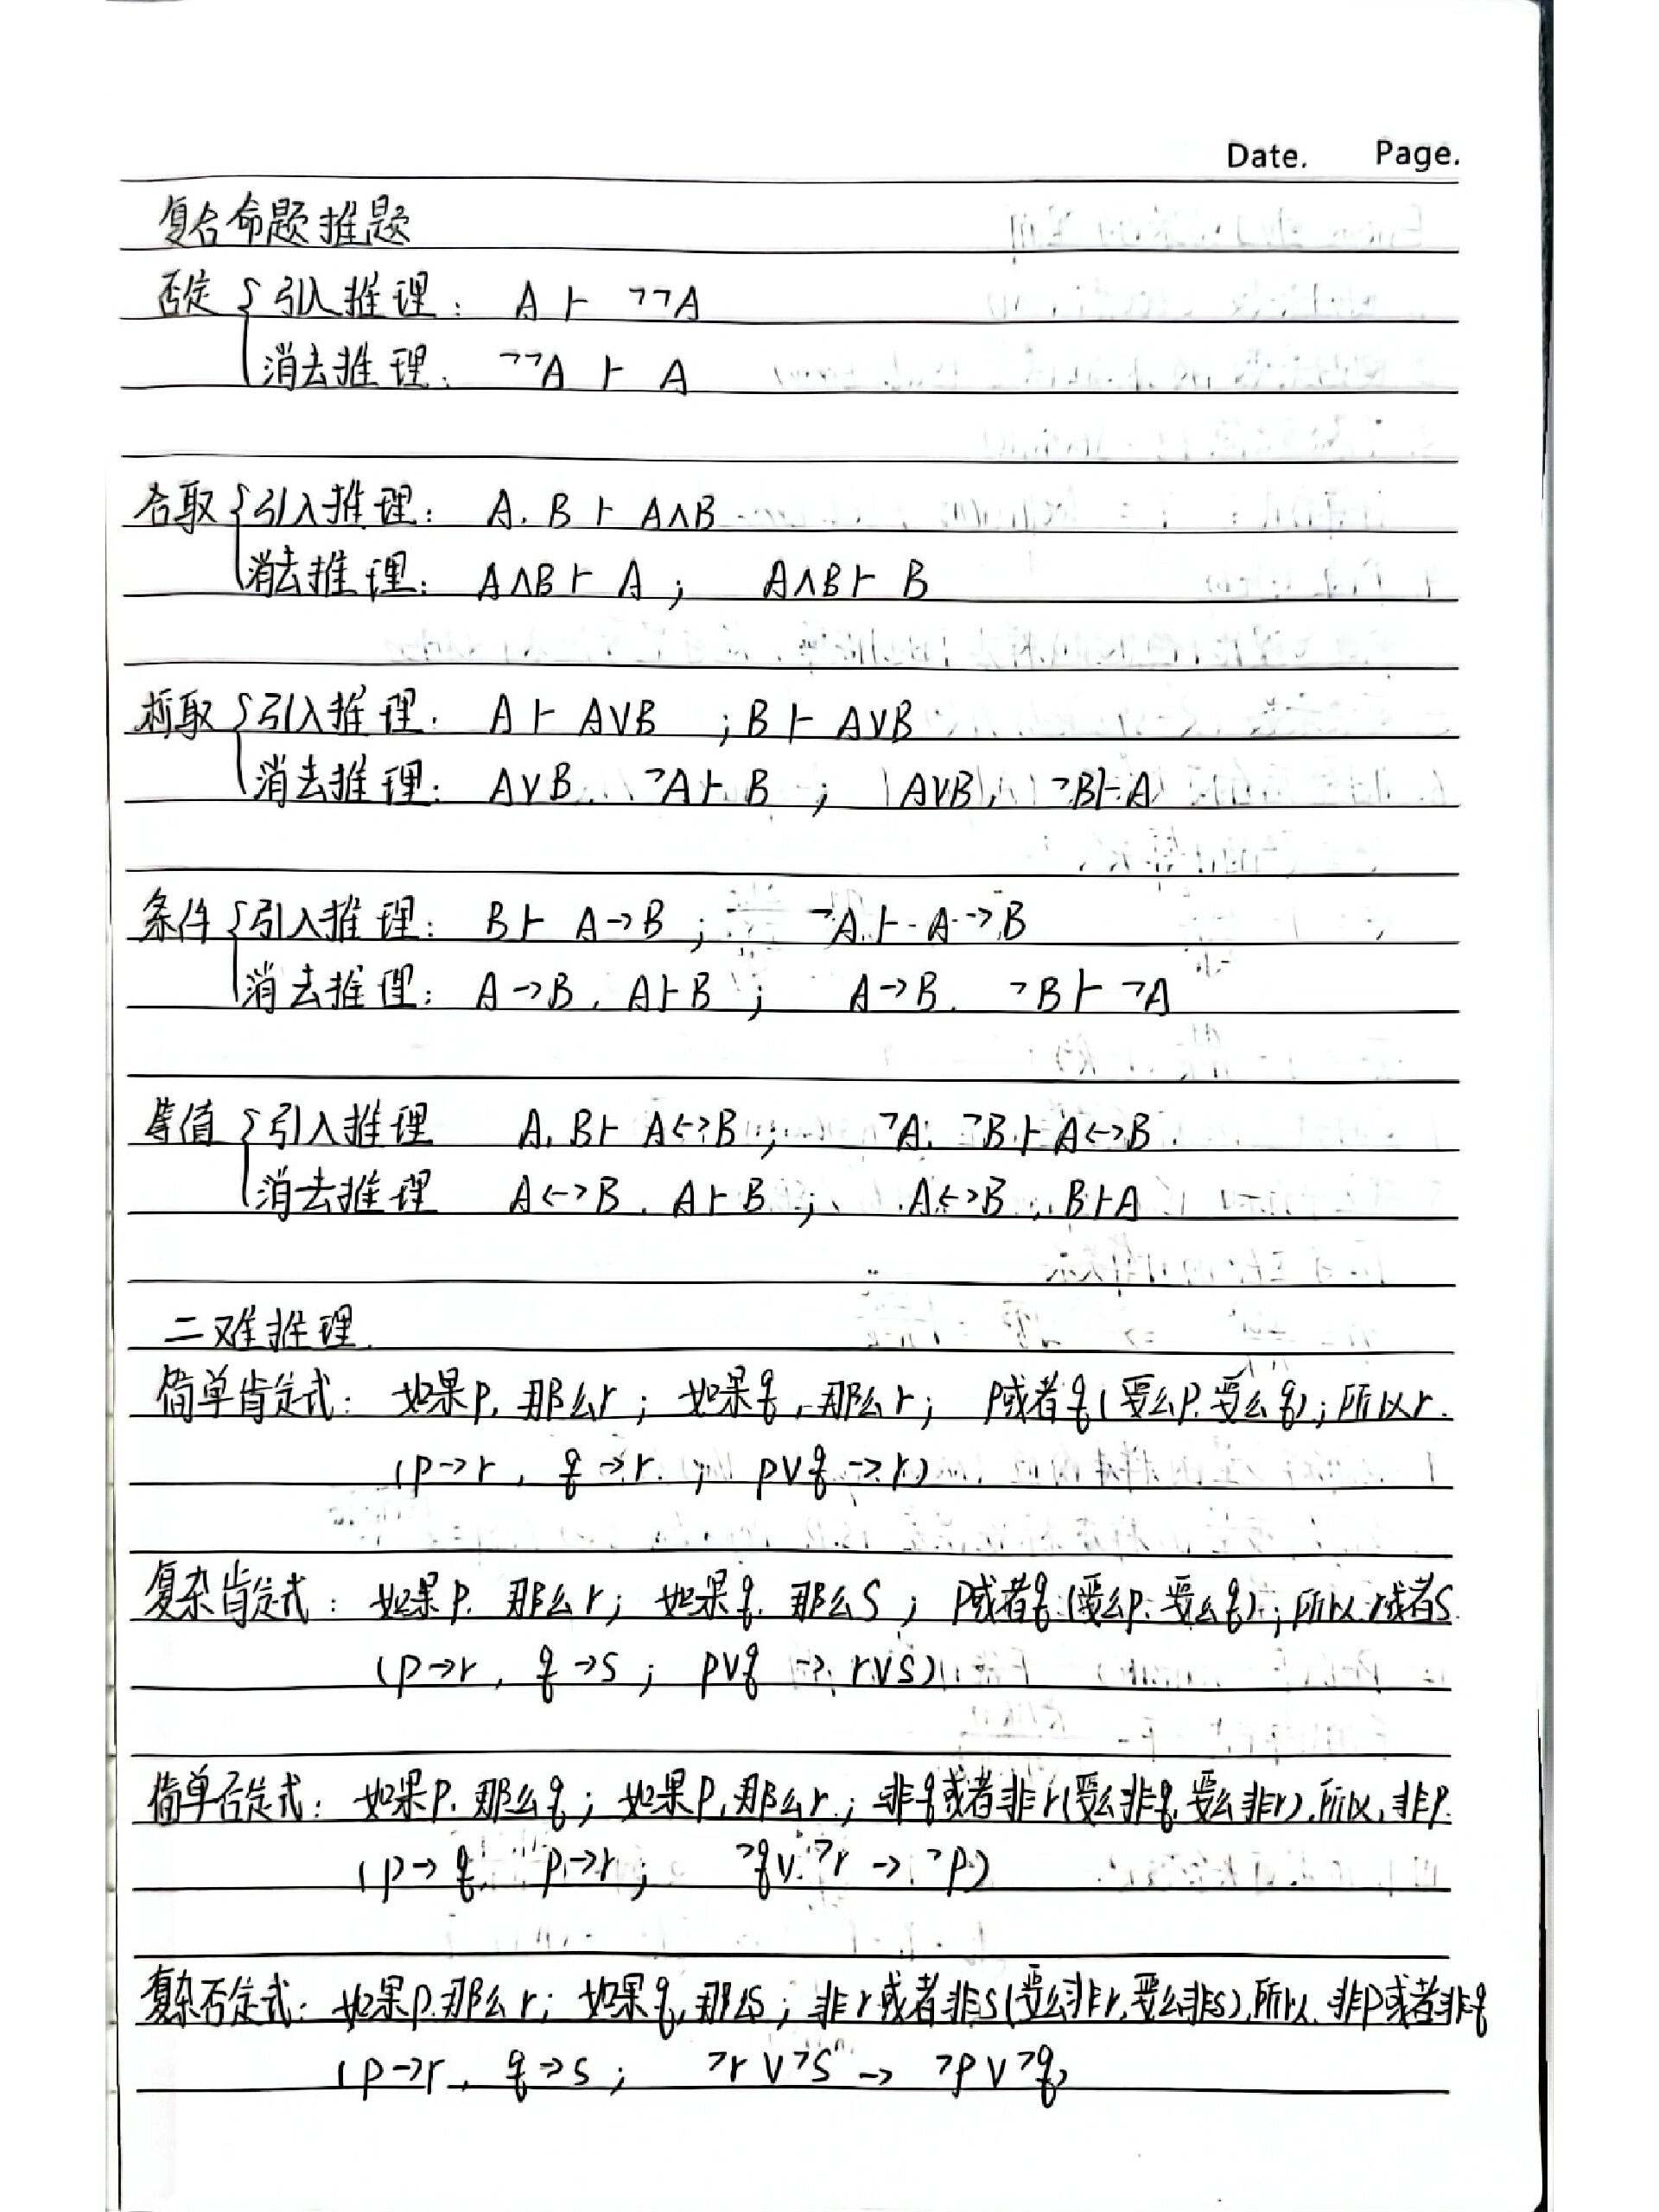 Date. Page.
复合命题推题
否定 { 引入推理: A ⊢ ¬¬A
消去推理: ¬¬A ⊢ A
合取 { 引入推理: A, B ⊢ A∧B
消去推理: A∧B ⊢ A; A∧B ⊢ B
析取 { 引入推理: A ⊢ A∨B ; B ⊢ A∨B
消去推理: A∨B, ¬A ⊢ B ; (A∨B), ¬B ⊢ A
条件 { 引入推理: B ⊢ A→B ; ¬A ⊢ A→B
消去推理: A→B, A ⊢ B ; A→B, ¬B ⊢ ¬A
等值 { 引入推理 A, B ⊢ A↔B ; ¬A, ¬B ⊢ A↔B
消去推理 A↔B, A ⊢ B ; A↔B, B ⊢ A
二难推理.
简单肯定式: 如果p, 那么r; 如果q, 那么r; p或者q(要么p, 要么q); 所以r.
(p→r, q→r ; p∨q → r)
复杂肯定式: 如果p, 那么r; 如果q, 那么s; p或者q(要么p, 要么q); 所以r或者s
(p→r, q→s ; p∨q → r∨s)
简单否定式: 如果p, 那么q; 如果p, 那么r; 非q或者非r(要么非q, 要么非r), 所以, 非p.
(p→q, p→r; ¬q∨¬r → ¬p)
复杂否定式: 如果p, 那么r; 如果q, 那么s; 非r或者非s(要么非r, 要么非s), 所以, 非p或者非q
(p→r, q→s; ¬r∨¬s → ¬p∨¬q)